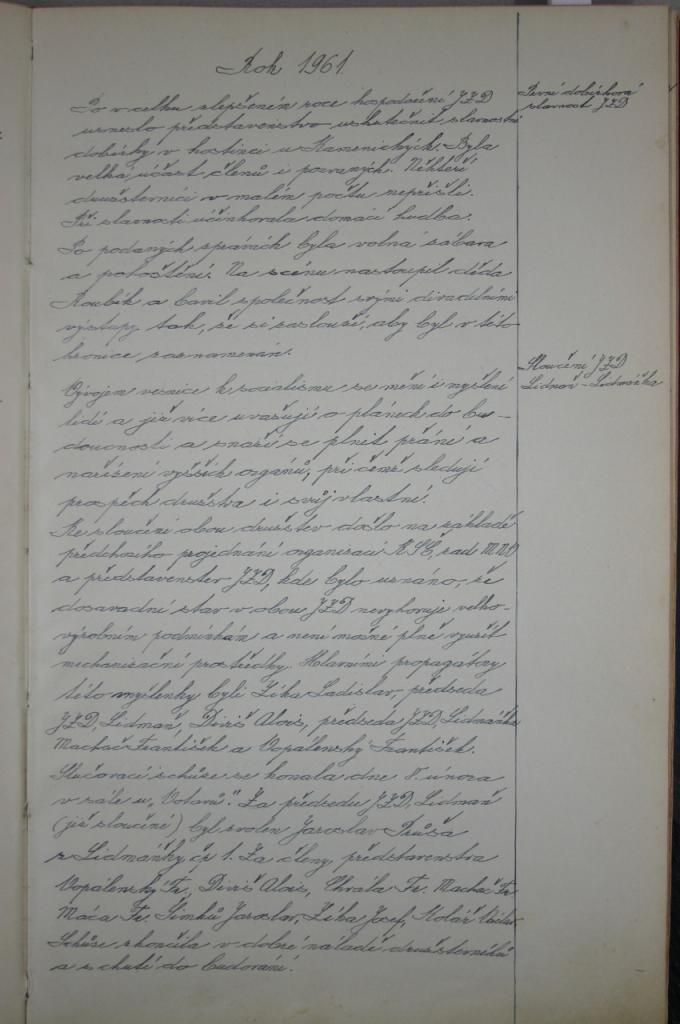 Rok 1961.
První dobírková
slavnost JZD
Po v celku zlepšeném roce hospodaření JZD
usneslo představenstvo uskutečnit slavnostní
dobírky v hostinci u Kamenických. Byla
velká účast členů i pozvaných. Někteří
družstevníci v malém počtu nepřišli.
Při slavnosti účinkovala domací hudba.
Po podaných zprávách byla volná zábava
a pohoštění. Na scénu nastoupil děda
Roubík a bavil společnost svými divadelními
výstupy tak, že si zaslouží, aby byl v této
kronice zaznamenán.
Sloučení JZD
Lidmaň - Lidmaňka
Vývojem vesnice k socialismu se mění i myšlení
lidí a již více uvažují o plánech do bu-
doucnosti a snaží se plnit přání a
nařízení vyšších orgánů, při čemž sledují
prospěch družstva i svůj vlastní.
Ke sloučení obou družstev došlo na základě
předchozího projednání organizací KSČ, rad MNV,
a představenstev JZD, kde bylo uznáno, že
dosavadní stav v obou JZD nevyhovuje velko-
výrobním podmínkám a není možné plně využít
mechanizační prostředky. Hlavními propagátory
této myšlenky byli Zíka Ladislav, předseda
JZD, Lidmaň, Diviš Alois, předseda JZD, Lidmaňka
Machač František a Vopálenský František.
Slučovací schůze se konala dne 8. února
v sále u „Votavů". Za předsedu JZD, Lidmaň
(již sloučené) byl zvolen Jaroslav Průša
z Lidmaňky čp 1. Za členy představenstva
Vopálenský Fr., Diviš Alois, Chrála Fr. Machač Fr.
Máca Fr. Šimků Jaroslav, Zíka Josef, Kolář Václav.
Schůze skončila v dobré náladě družstevníků
a s chutí do budování.